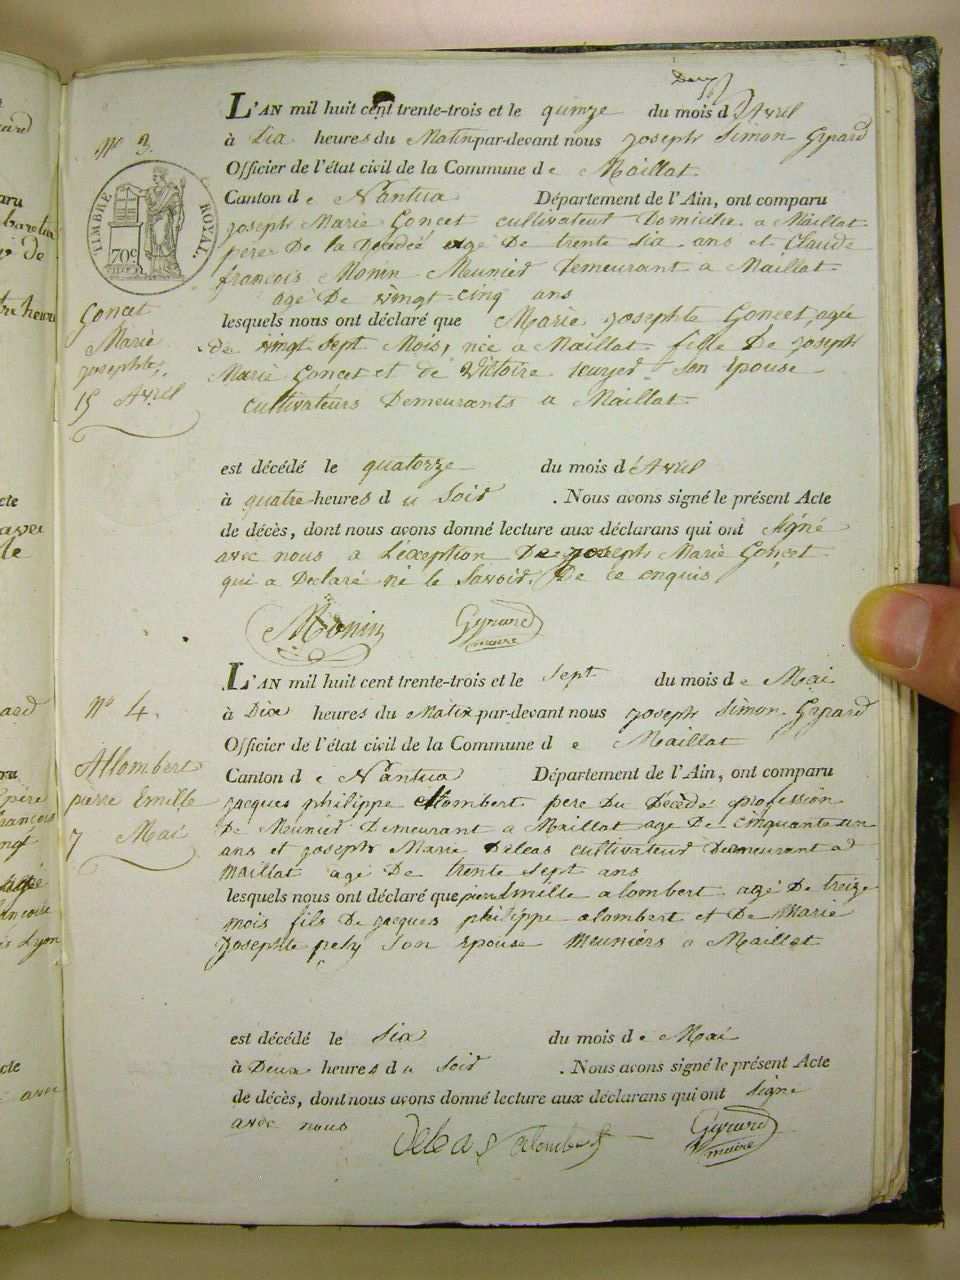 L'AN mil huit cent trente-trois et le quinze du mois d'Avril
N° 3 à Six heures du Matin par-devant nous joseph Simon Gyrard
Officier de l'état civil de la Commune de Maillat
Canton de Nantua Département de l'Ain, ont comparu
TIMBRE ROYAL
70c
joseph Marie Goncet cultivateur Domicilié a Maillat
père De la Décédée agé De trente Six ans et Claude
françois Monin Meunier Demeurant a Maillat
agé De vingt-cinq ans
Goncet
Marie
josephte,
15 Avril
lesquels nous ont déclaré que Marie josephte Goncet, agée
de vingt Sept Mois, née a Maillat fille De joseph
Marie Goncet et de Victoire Son épouse
cultivateurs Demeurants a Maillat
est décédé le quatorze du mois d'Avril
à quatre heures du Soir . Nous avons signé le présent Acte
de décès, dont nous avons donné lecture aux déclarans qui ont Signé
avec nous a L'éxception De joseph Marie Goncet
qui a Declaré ne le Savoir, De ce enquis
Monin Gyrard
maire
L'AN mil huit cent trente-trois et le Sept du mois de Mai
N° 4. à Dix heures du Matin par-devant nous joseph Simon Gyrard
Officier de l'état civil de la Commune de Maillat
Allombert
pierre Emille
7 Mai
Canton de Nantua Département de l'Ain, ont comparu
jacques philippe allombert pere Du Décédé profession
De Meunier Demeurant a Maillat age De cinquante un
ans et joseph Marie Deleas cultivateur Demeurant a
Maillat agé De trente Sept ans
lesquels nous ont déclaré que pierre Emille alombert agé De treize
mois fils De jacques philippe alombert et De Marie
josephte Son Epouse Meuniers a Maillat
est décédé le Six du mois de Mai
à Deux heures du Soir . Nous avons signé le présent Acte
de décès, dont nous avons donné lecture aux déclarans qui ont Signe
avec nous
Deleas alombert Gyrard
maire